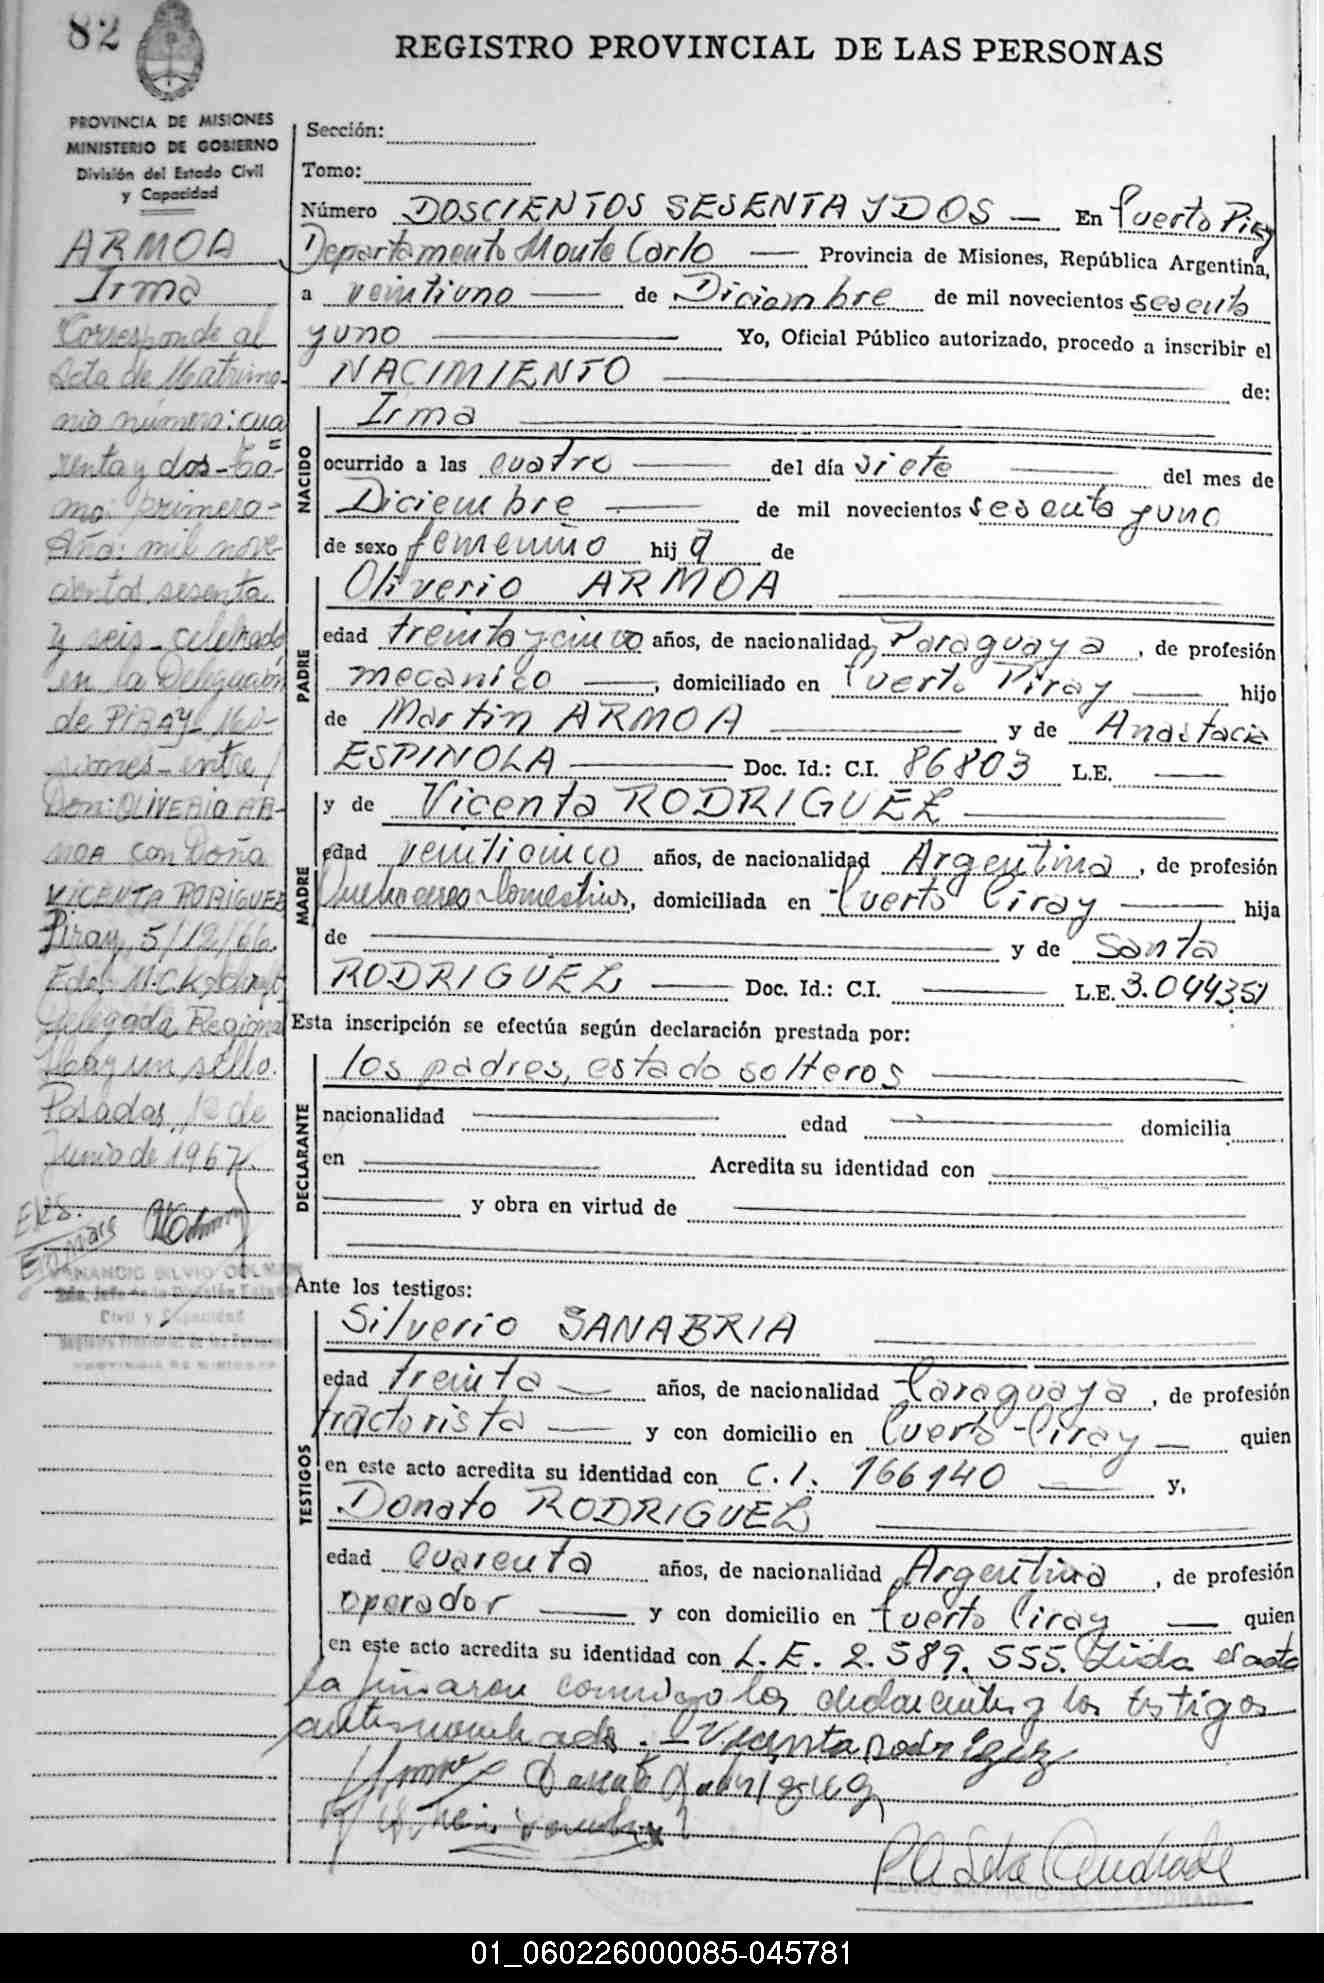 82
REGISTRO PROVINCIAL DE LAS PERSONAS
PROVINCIA DE MISIONES
MINISTERIO DE GOBIERNO
División del Estado Civil
y Capacidad
ARMOA
Irma
Corresponde al
Acta de Matrimo-
nio número: cua
renta y dos - To-
mo: primero -
Año: mil nove-
cientos sesenta
y seis - celebrado
en la Delegación
de PIRAY - Mi-
siones - entre /
Don: OLIVERIO AR-
MOA con Doña
VICENTA RODRIGUEZ
Piray, 5/12/66.
Delegada Regional
Hay un sello.
Posadas, 1º de
Junio de 1967
Civil y Capacidad
Sección:
Tomo:
Número DOSCIENTOS SESENTA Y DOS — En Puerto Piray
Departamento Monte Carlo — Provincia de Misiones, República Argentina,
a veintiuno — de Diciembre de mil novecientos sesenta
y uno — Yo, Oficial Público autorizado, procedo a inscribir el
NACIMIENTO — de:
NACIDO
Irma
ocurrido a las cuatro — del día siete — del mes de
Diciembre — de mil novecientos sesenta y uno
de sexo femenino hija de
PADRE
Oliverio ARMOA
edad treinta y cinco años, de nacionalidad Paraguaya, de profesión
mecanico —, domiciliado en Puerto Piray — hijo
de Martin ARMOA — y de Anastacia
ESPINOLA — Doc. Id.: C.I. 86803 L.E. —
MADRE
y de Vicenta RODRIGUEZ
edad veinticinco años, de nacionalidad Argentina, de profesión
Quehaceres Domesticos, domiciliada en Puerto Piray — hija
de — y de Santa
RODRIGUEZ — Doc. Id.: C.I. — L.E. 3.044351
Esta inscripción se efectúa según declaración prestada por:
DECLARANTE
los padres, estado solteros —
nacionalidad — edad — domicilia
en — Acredita su identidad con —
— y obra en virtud de —
Ante los testigos:
TESTIGOS
Silverio SANABRIA —
edad treinta — años, de nacionalidad Paraguaya, de profesión
tractorista — y con domicilio en Puerto Piray — quien
en este acto acredita su identidad con C.I. 166140 — y,
Donato RODRIGUEZ —
edad cuarenta años, de nacionalidad Argentina, de profesión
operador — y con domicilio en Puerto Piray — quien
en este acto acredita su identidad con L.E. 2.589.555. Leida el acta
la firmaron conmigo los declarantes y los testigos
antes nombrados. — Vicenta Rodriguez
Donato Rodriguez
01_060226000085-045781